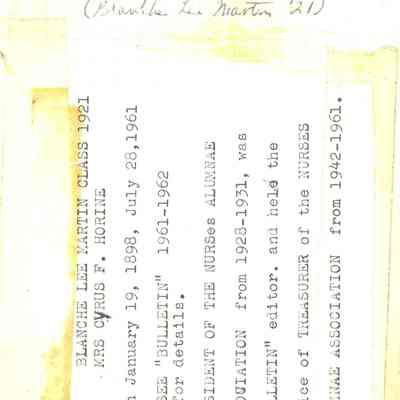 (Blanche Lee Martin '21)
BLANCHE LEE MARTIN CLASS 1921
MRS CYRUS F. HORINE
n January 19, 1898, July 28,1961
SEE "BULLETIN" 1961-1962
for details.
SIDENT OF THE NURSEs ALUMNAE
OCIATION from 1928-1931, was
LLETIN" editor. and held the
ice of TREASURER of the NURSES
MNAE ASSOCIATION from 1942-1961.